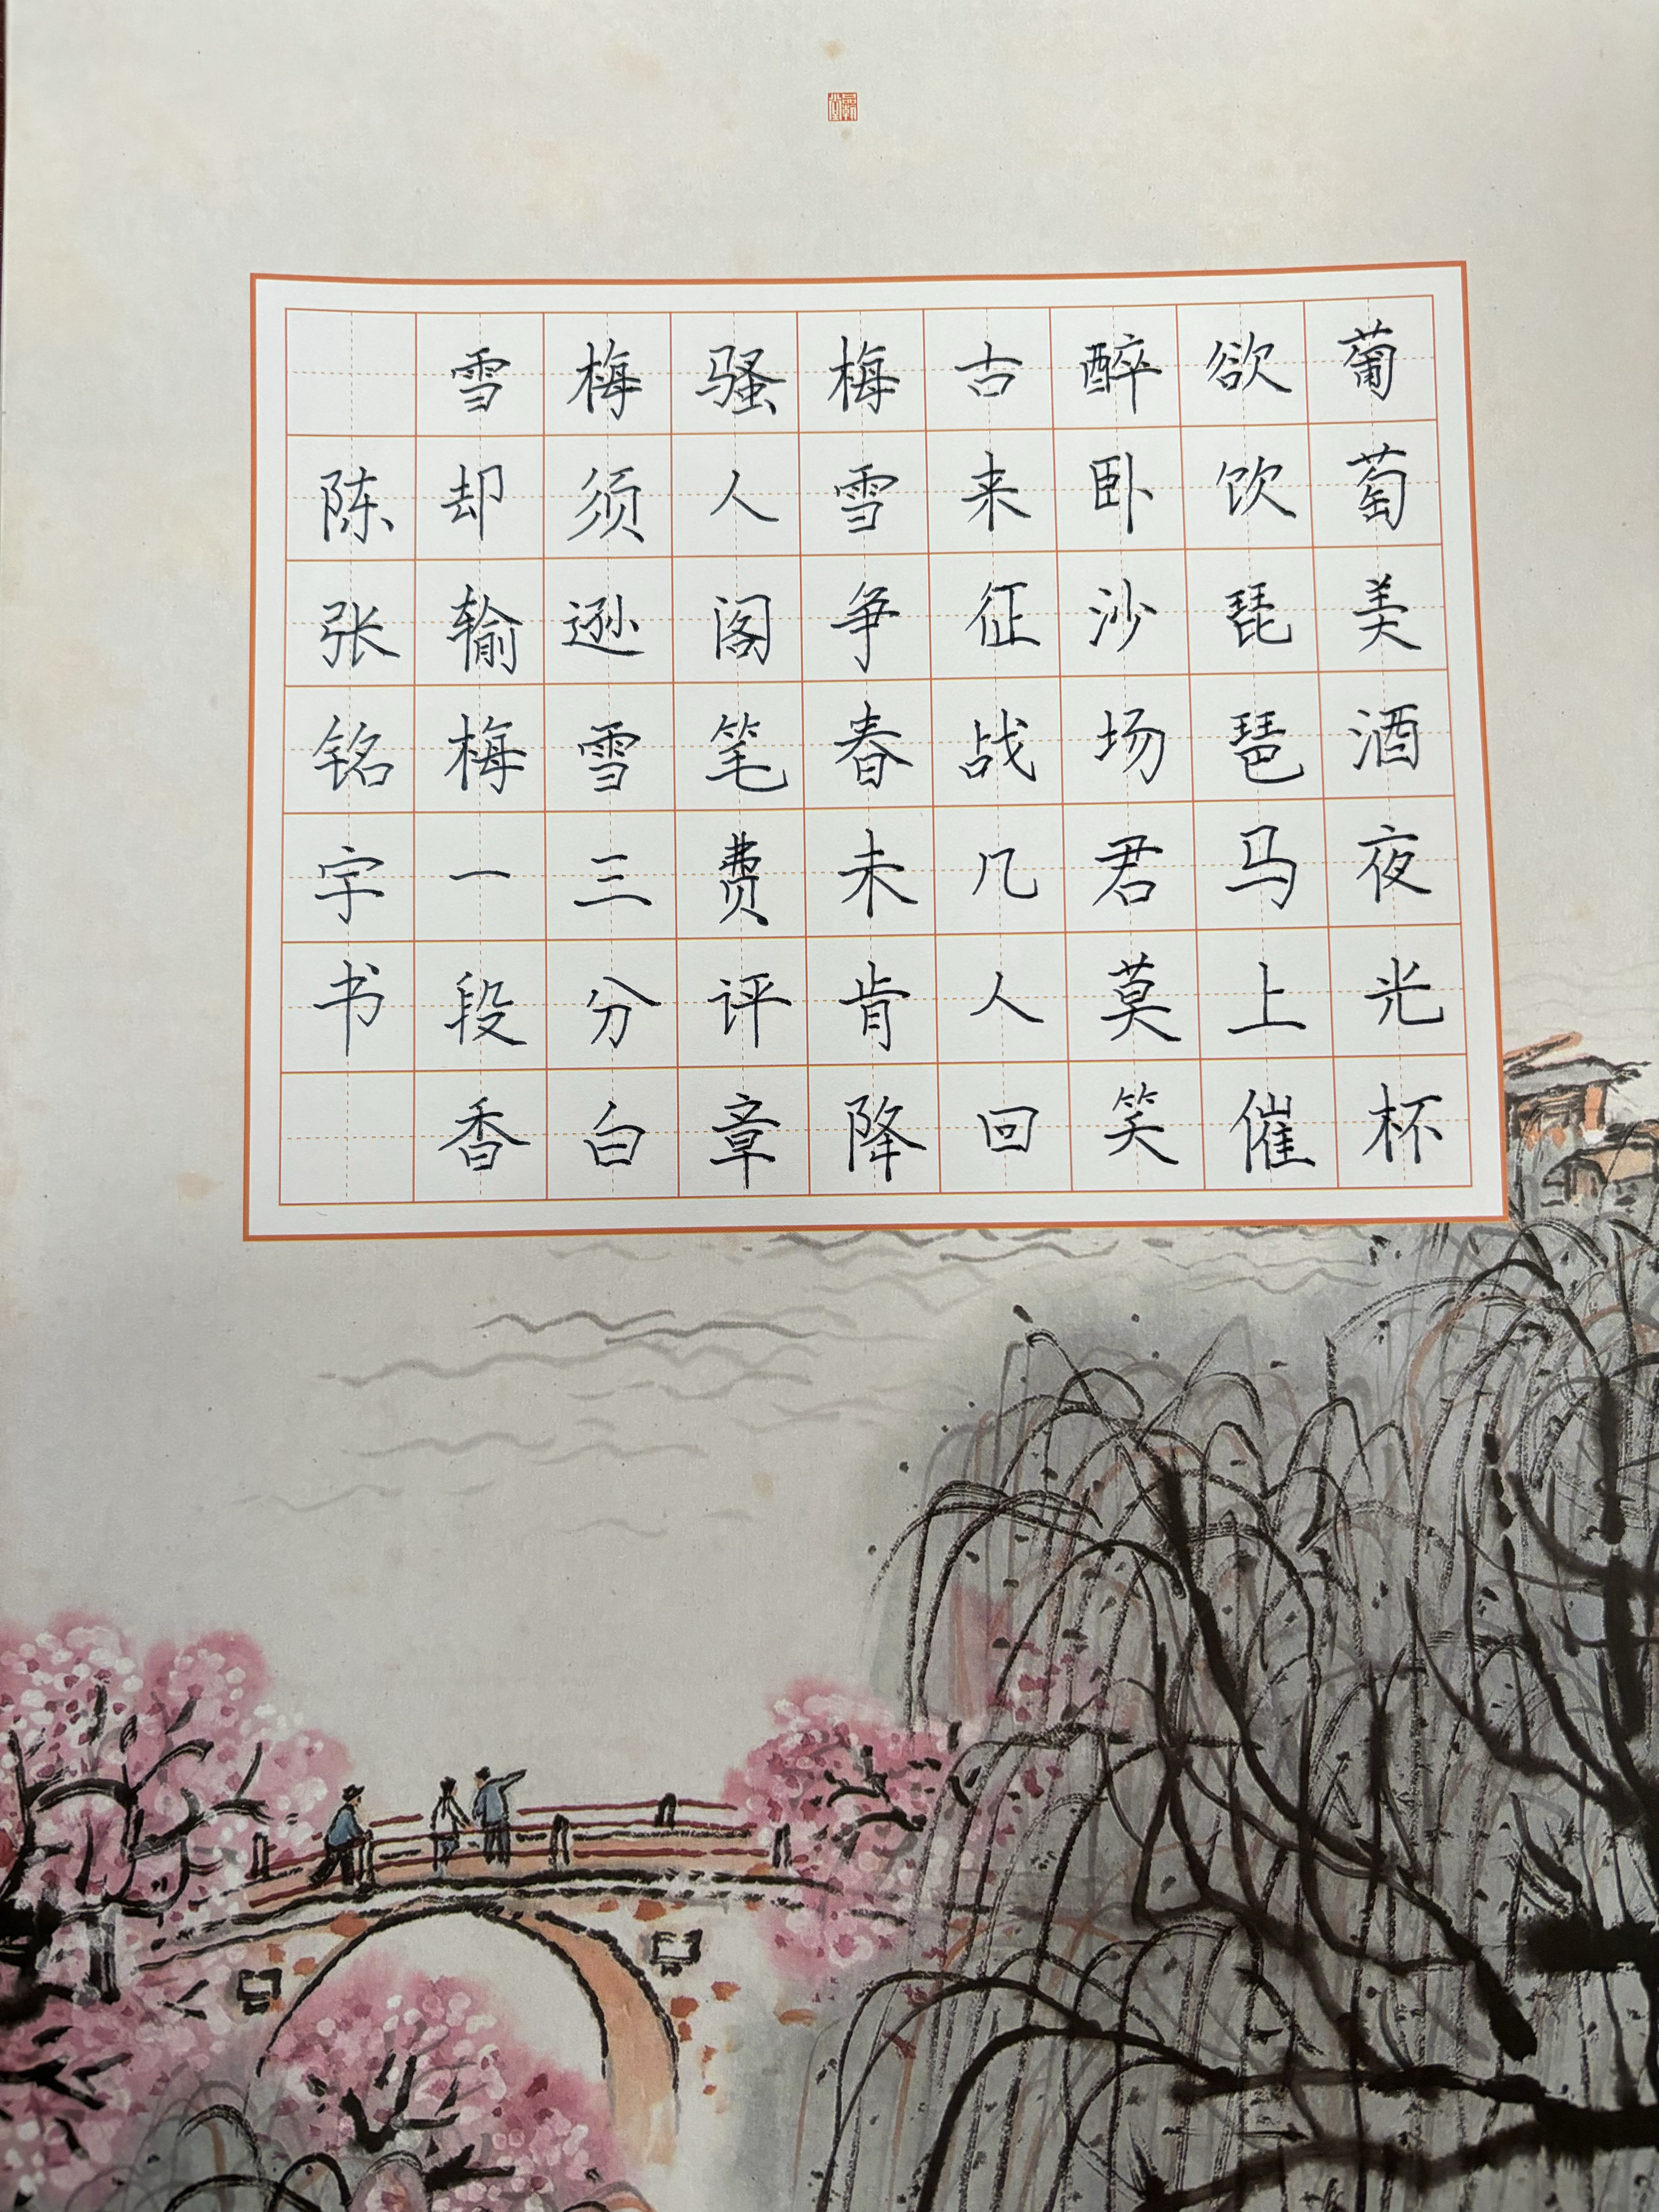 葡萄美酒夜光杯
欲饮琵琶马上催
醉卧沙场君莫笑
古来征战几人回
梅雪争春未肯降
骚人阁笔费评章
梅须逊雪三分白
雪却输梅一段香
陈张铭宇书